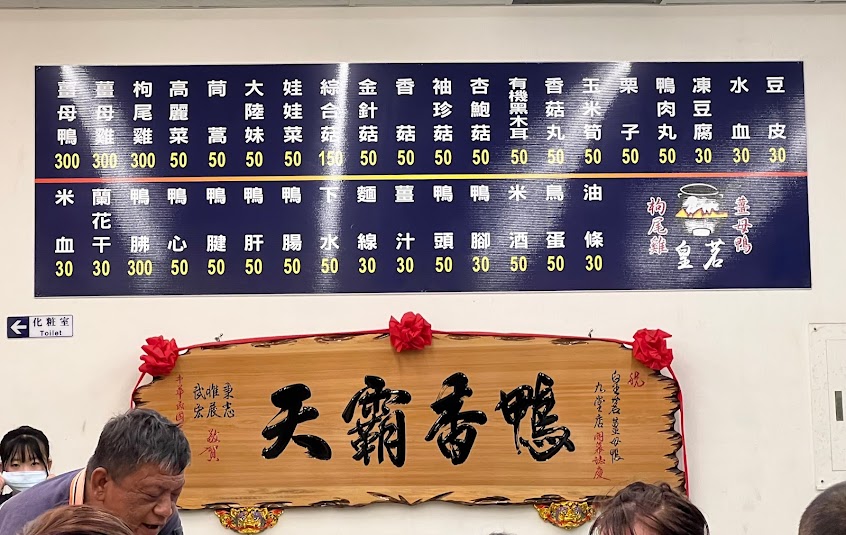 薑母鴨 300
薑母雞 300
枸尾雞 300
高麗菜 50
茼蒿 50
大陸妹 50
娃娃菜 50
綜合菇 150
金針菇 50
香菇 50
袖珍菇 50
杏鮑菇 50
有機黑木耳 50
香菇丸 50
玉米筍 50
栗子 50
鴨肉丸 50
凍豆腐 30
水血 30
豆皮 30
米血 30
蘭花干 30
鴨胇 300
鴨心 50
鴨腱 50
鴨肝 50
鴨腸 50
下水 50
麵線 30
薑汁 50
鴨頭 50
鴨腳 30
米酒 50
鳥蛋 50
油條 30
枸尾雞
皇茗
薑母鴨
化粧室
Toilet
天霸香鴨
祝
皇茗薑母鴨
九堂店開幕誌慶
秉志
唯展
武宏
敬賀